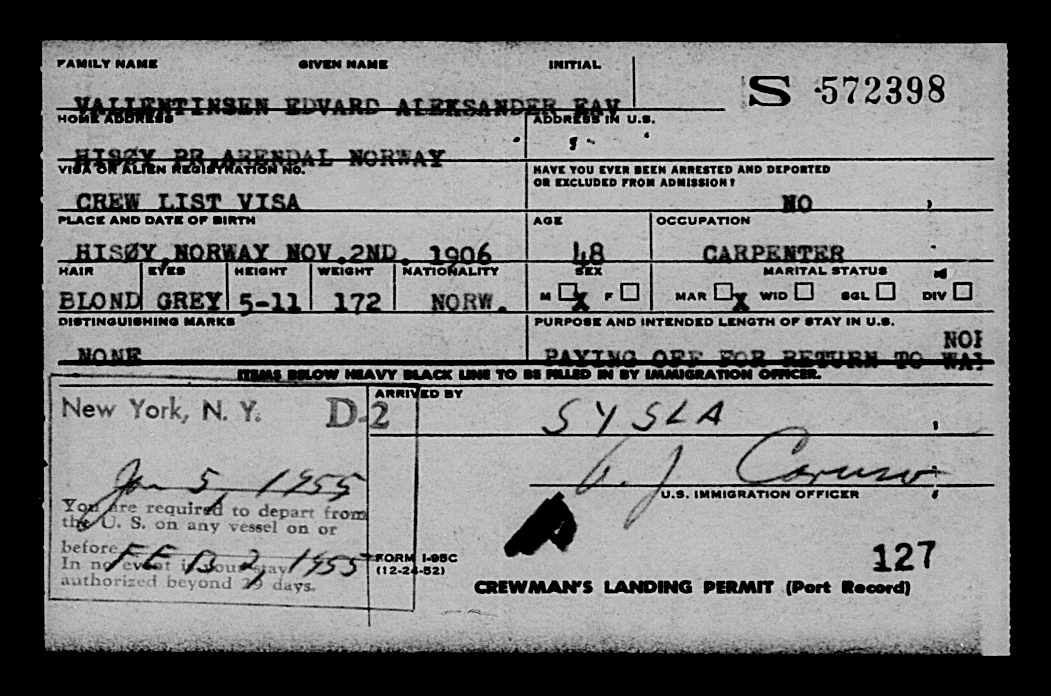 FAMILY NAME GIVEN NAME INITIAL
S 572398
VALLENTINSEN EDVARD ALEKSANDER EAV
HOME ADDRESS ADDRESS IN U.S.
HISØY PR.ARENDAL NORWAY
VISA OR ALIEN REGISTRATION NO. HAVE YOU EVER BEEN ARRESTED AND DEPORTED
OR EXCLUDED FROM ADMISSION?
CREW LIST VISA NO
PLACE AND DATE OF BIRTH AGE OCCUPATION
HISØY,NORWAY NOV.2ND. 1906 48 CARPENTER
HAIR EYES HEIGHT WEIGHT NATIONALITY SEX MARITAL STATUS
BLOND GREY 5-11 172 NORW. M X F MAR X WID SGL DIV
DISTINGUISHING MARKS PURPOSE AND INTENDED LENGTH OF STAY IN U.S.
NONE PAYING OFF FOR RETURN TO
ITEMS BELOW HEAVY BLACK LINE TO BE FILLED IN BY IMMIGRATION OFFICER.
New York, N. Y. D-2
ARRIVED BY
SYSLA
Jan 5, 1955
A. J. Caruso
U.S. IMMIGRATION OFFICER
You are required to depart from
the U. S. on any vessel on or
before FEB 2, 1955
In no event is your stay
authorized beyond 29 days.
FORM I-95C
(12-24-52)
127
CREWMAN'S LANDING PERMIT (Port Record)